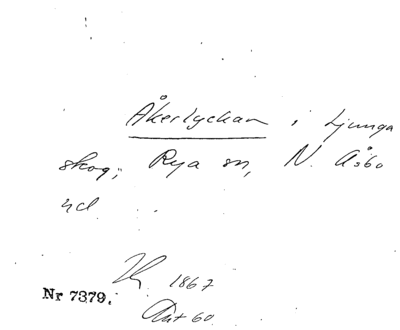 Åkerlyckan i Ljunga
skog; Rya sn, N. Åsbo
hd
1867
Nr 7379.
60